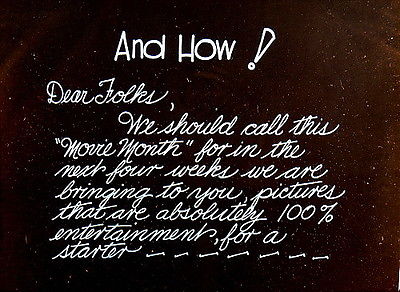 And How!
Dear Folks,
We should call this
"Movie Month" for in the
next four weeks we are
bringing to you, pictures
that are absolutely 100%
entertainment, for a
starter ~ ~ ~ ~ ~ ~ ~